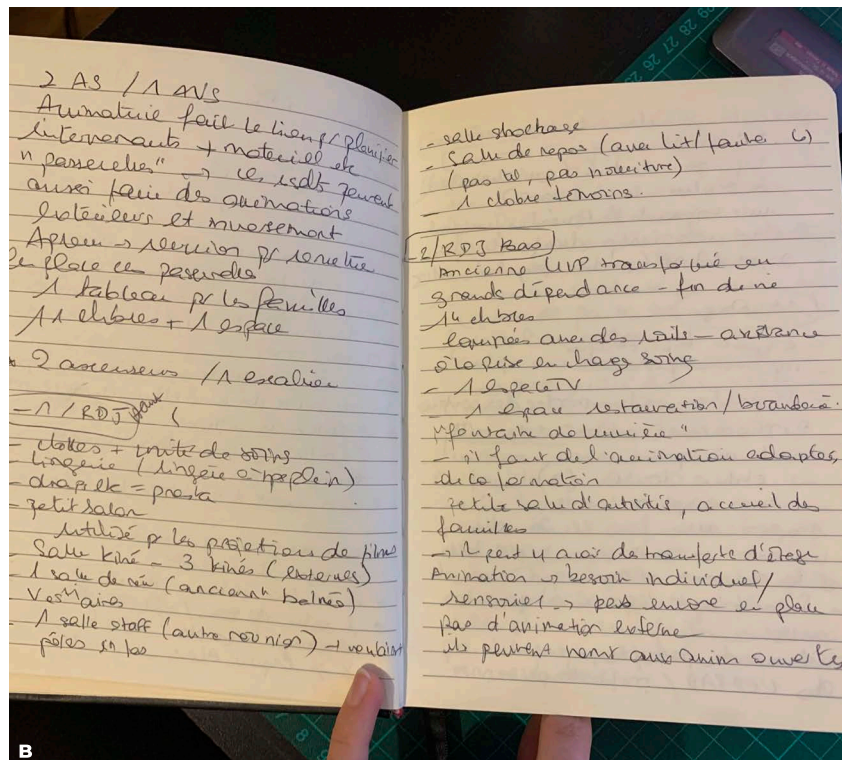 2 AS / 1 ANS
Animatrice fait le lien pr planifier
intervenants + materiel etc
"passerelles" → ces isdt peuvent
aussi faire des animations
Extérieurs et
Aprem → reunion pr remettre
en place ces passerelles
1 tableau pr les familles
11 chbres + 1 espace
2 ascenseurs / 1 escalier
-1 / RDJ haut (
- chbres + unité de soins
lingerie (lingère à tps plein)
- drap etc = presta
- petit salon
utilisé pr les projections de films
- Salle Kiné - 3 kinés (externes)
1 salle de réu (ancienn balnéo)
Vestiaires
- 1 salle staff (autre reunion) →
pôles en bas
- salle stockage
- Salle de repos (avec lit/fauteu
(pas tel, pas nourriture)
- 1 chbre témoins.
-2/RDJ Bas
Ancienne UVP transformé en
grands dépendance - fin de vie
14 chbres
équipées avec des rails - assistance
à la prise en charge soins
- 1 espace TV
1 espace restauration/
"fontaine de lumière"
- il faut de l'animation adaptés,
de co formation
petite salle d'activités, accueil des
familles
→ Il peut y avoir de transferte d'étage
Animation → besoin individuel/
sensoriel → pas encore en place
pas d'animation externe
ils peuvent venir aux anim ouvertes
B